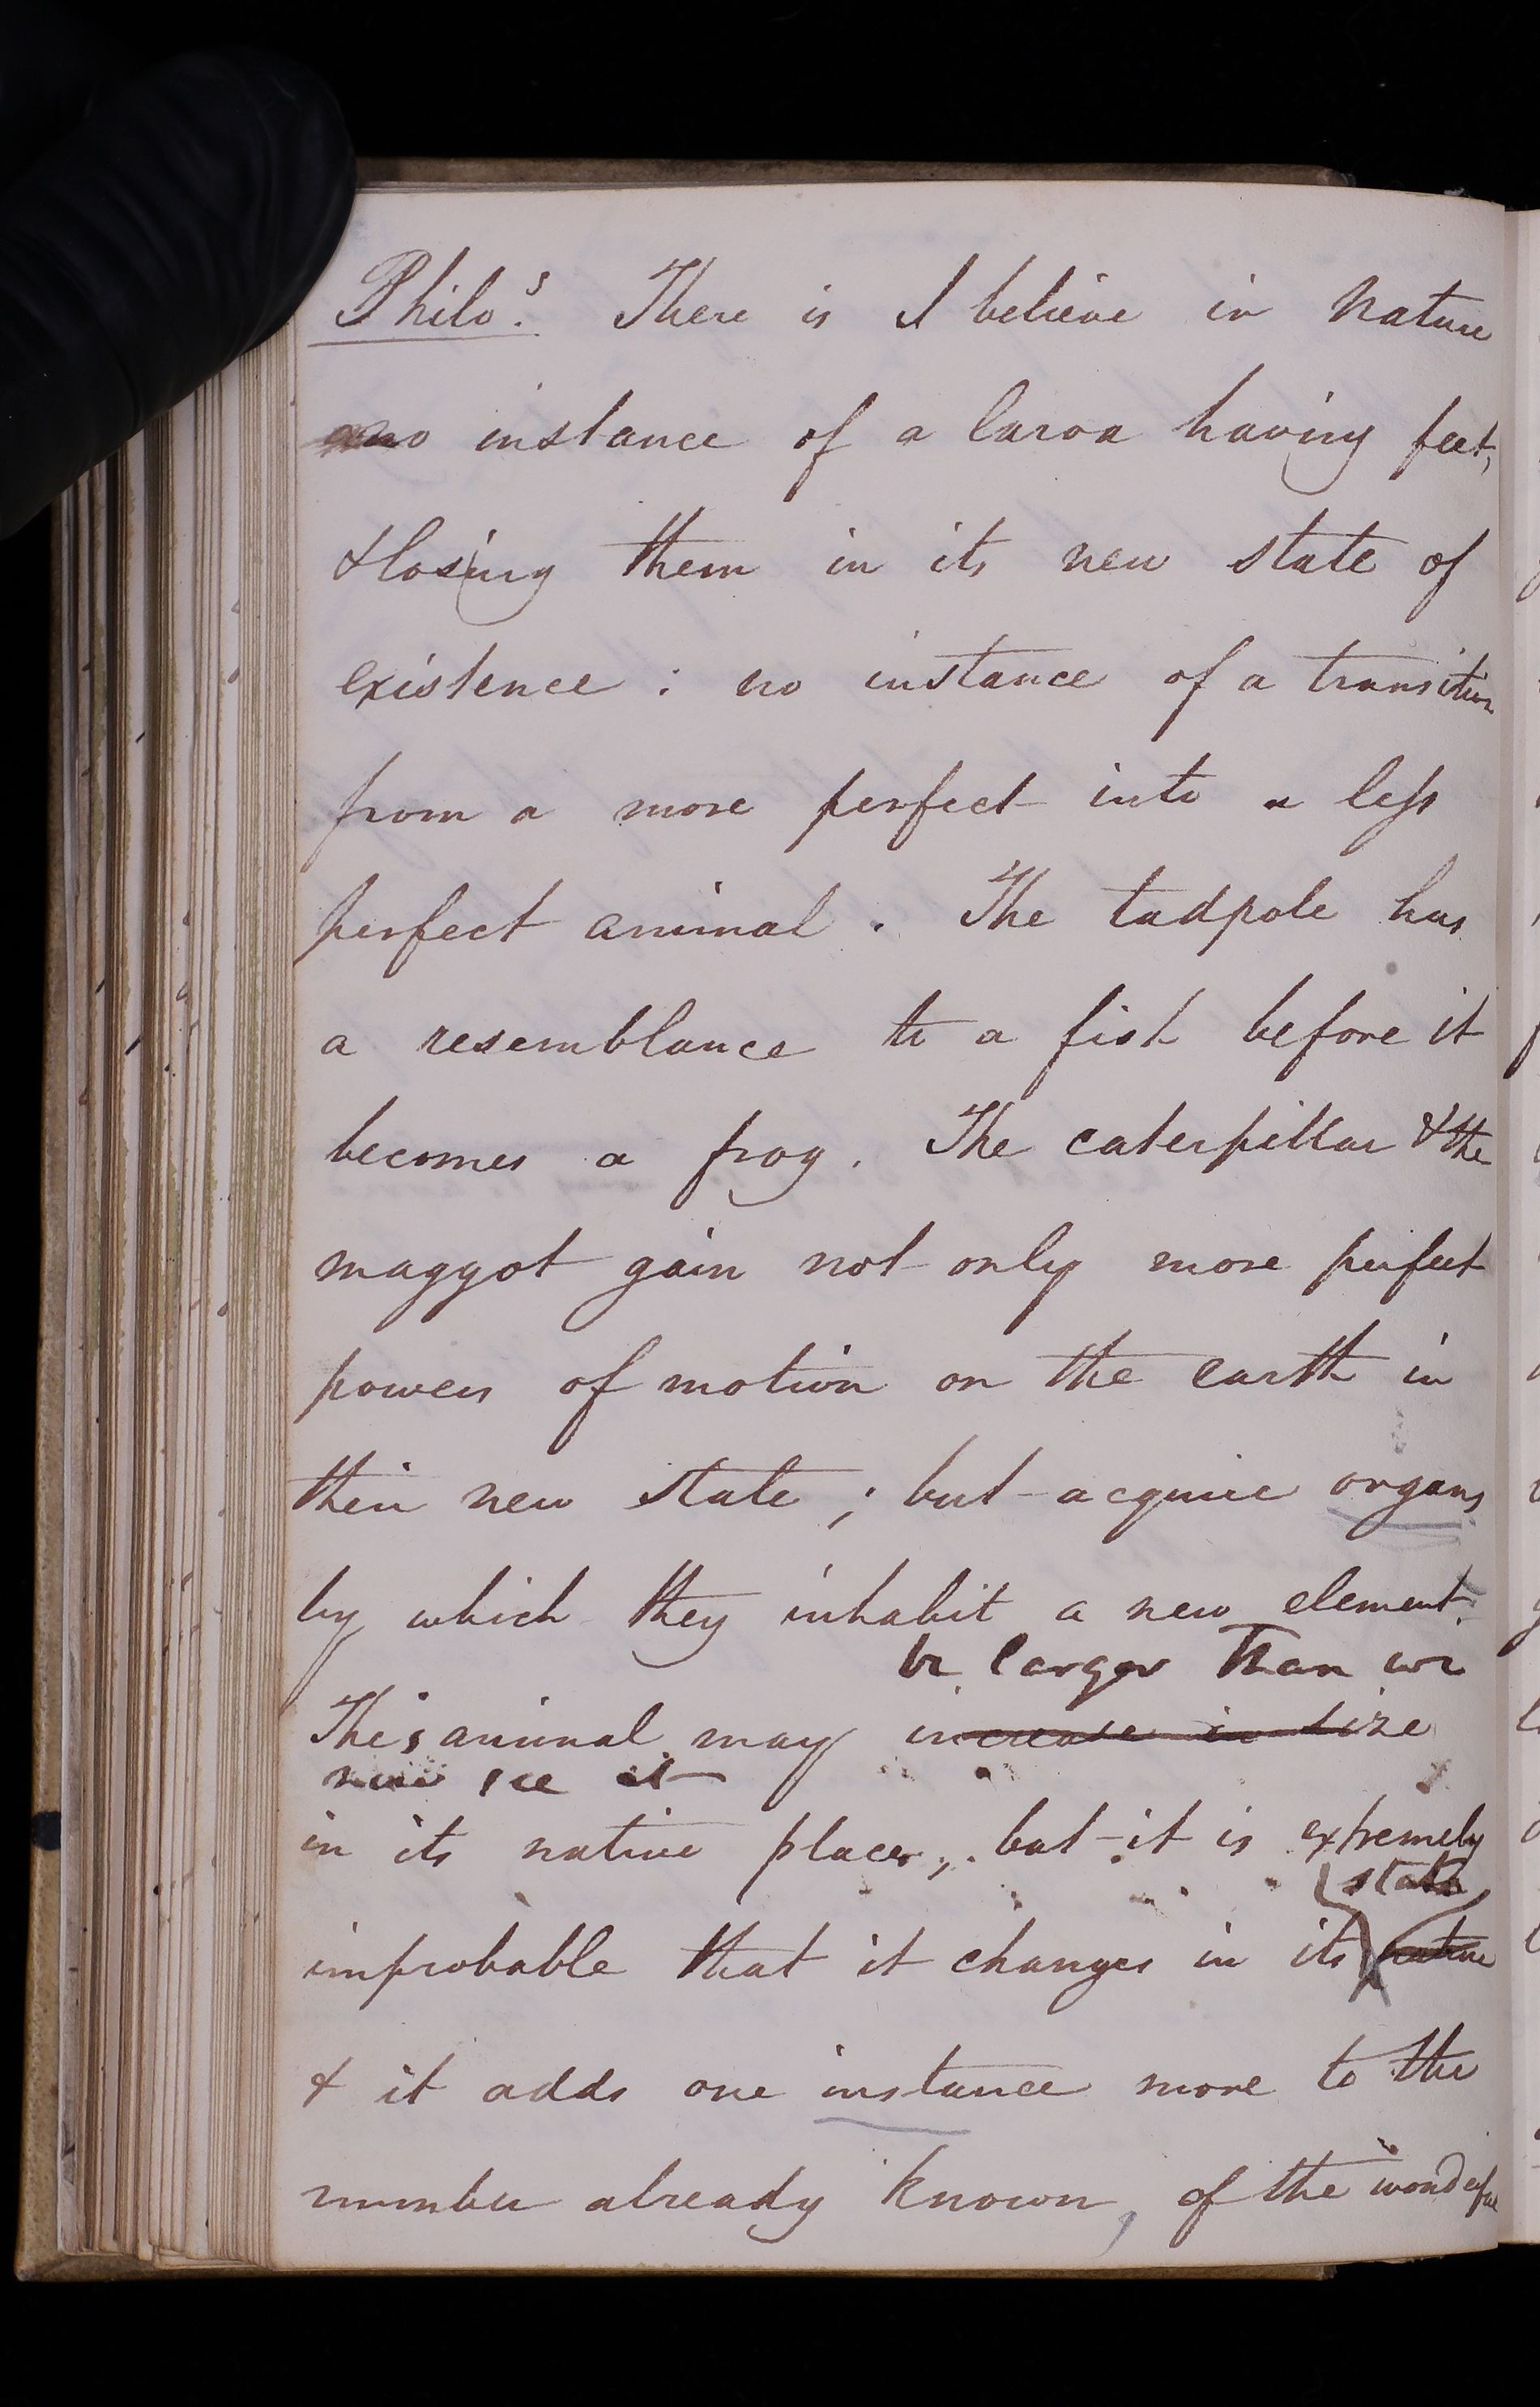 Philo.s There is I believe in Nature
no instance of a larva having feet,
& losing them in its new state of
existence : no instance of a transition
from a more perfect into a less
perfect animal. The tadpole has
a resemblance to a fish before it
becomes a frog. The caterpillar & the
maggot gain not only more perfect
powers of motion on the earth in
their new state ; but acquire organs
by which they inhabit a new element.
be larger than we
This animal may increase in size
now see it
in its native place, but it is extremely
state
improbable that it changes in its nature
& it adds one instance more to the
number already known, of the wonderful